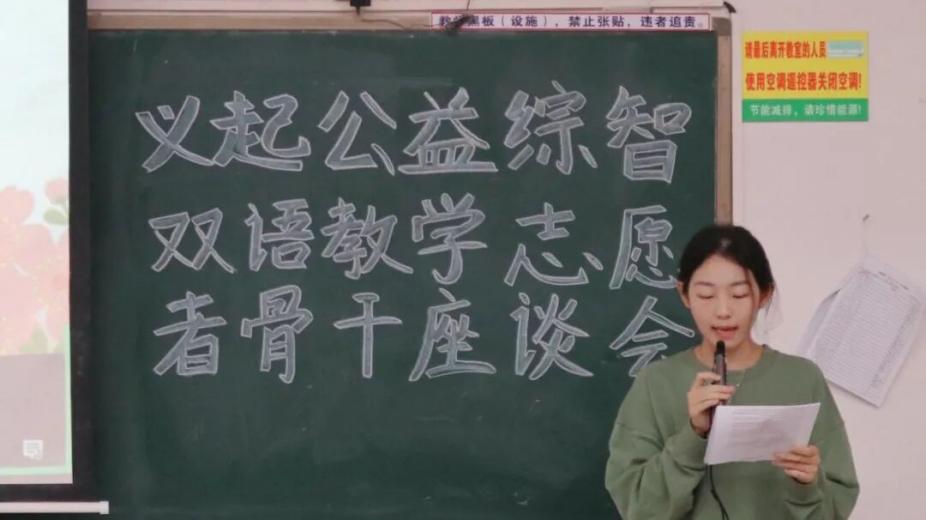 教学黑板（设施），禁止张贴，违者追责。
义起公益综智
双语教学志愿
者骨干座谈会
请最后离开教室的人员
使用空调遥控器关闭空调!
节能减排，请珍惜能源!